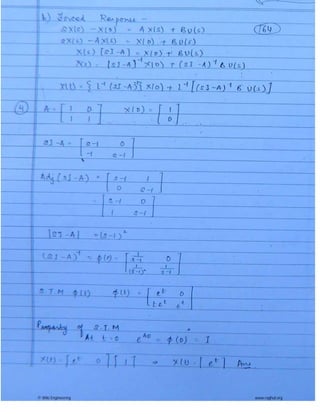 b) Forced Response -
(164)
sX(s) - X(0) = AX(s) + BU(s)
sX(s) - AX(s) = X(0) + BU(s)
X(s) [sI-A] = X(0) + BU(s)
X(s) = [sI-A]⁻¹ X(0) + (sI-A)⁻¹ B U(s)
X(t) = { L⁻¹ (sI-A)⁻¹} X(0) + L⁻¹ [(sI-A)⁻¹ B U(s)]
(4) A = [1 0; 1 1] X(0) = [1; 0]
sI-A = [s-1 0; -1 s-1]
Adj [sI-A] = [s-1 1; 0 s-1]
= [s-1 0; 1 s-1]
|sI-A| = (s-1)²
(sI-A)⁻¹ = φ(s) = [1/(s-1) 0; 1/(s-1)² 1/(s-1)]
S.T.M φ(t) φ(t) = [eᵗ 0; t.eᵗ eᵗ]
Property of S.T.M
At t=0 e^(A0) = φ(0) = I
X(t) = [eᵗ 0] [1] ⇒ X(t) = [eᵗ] Ans
www.raghul.org